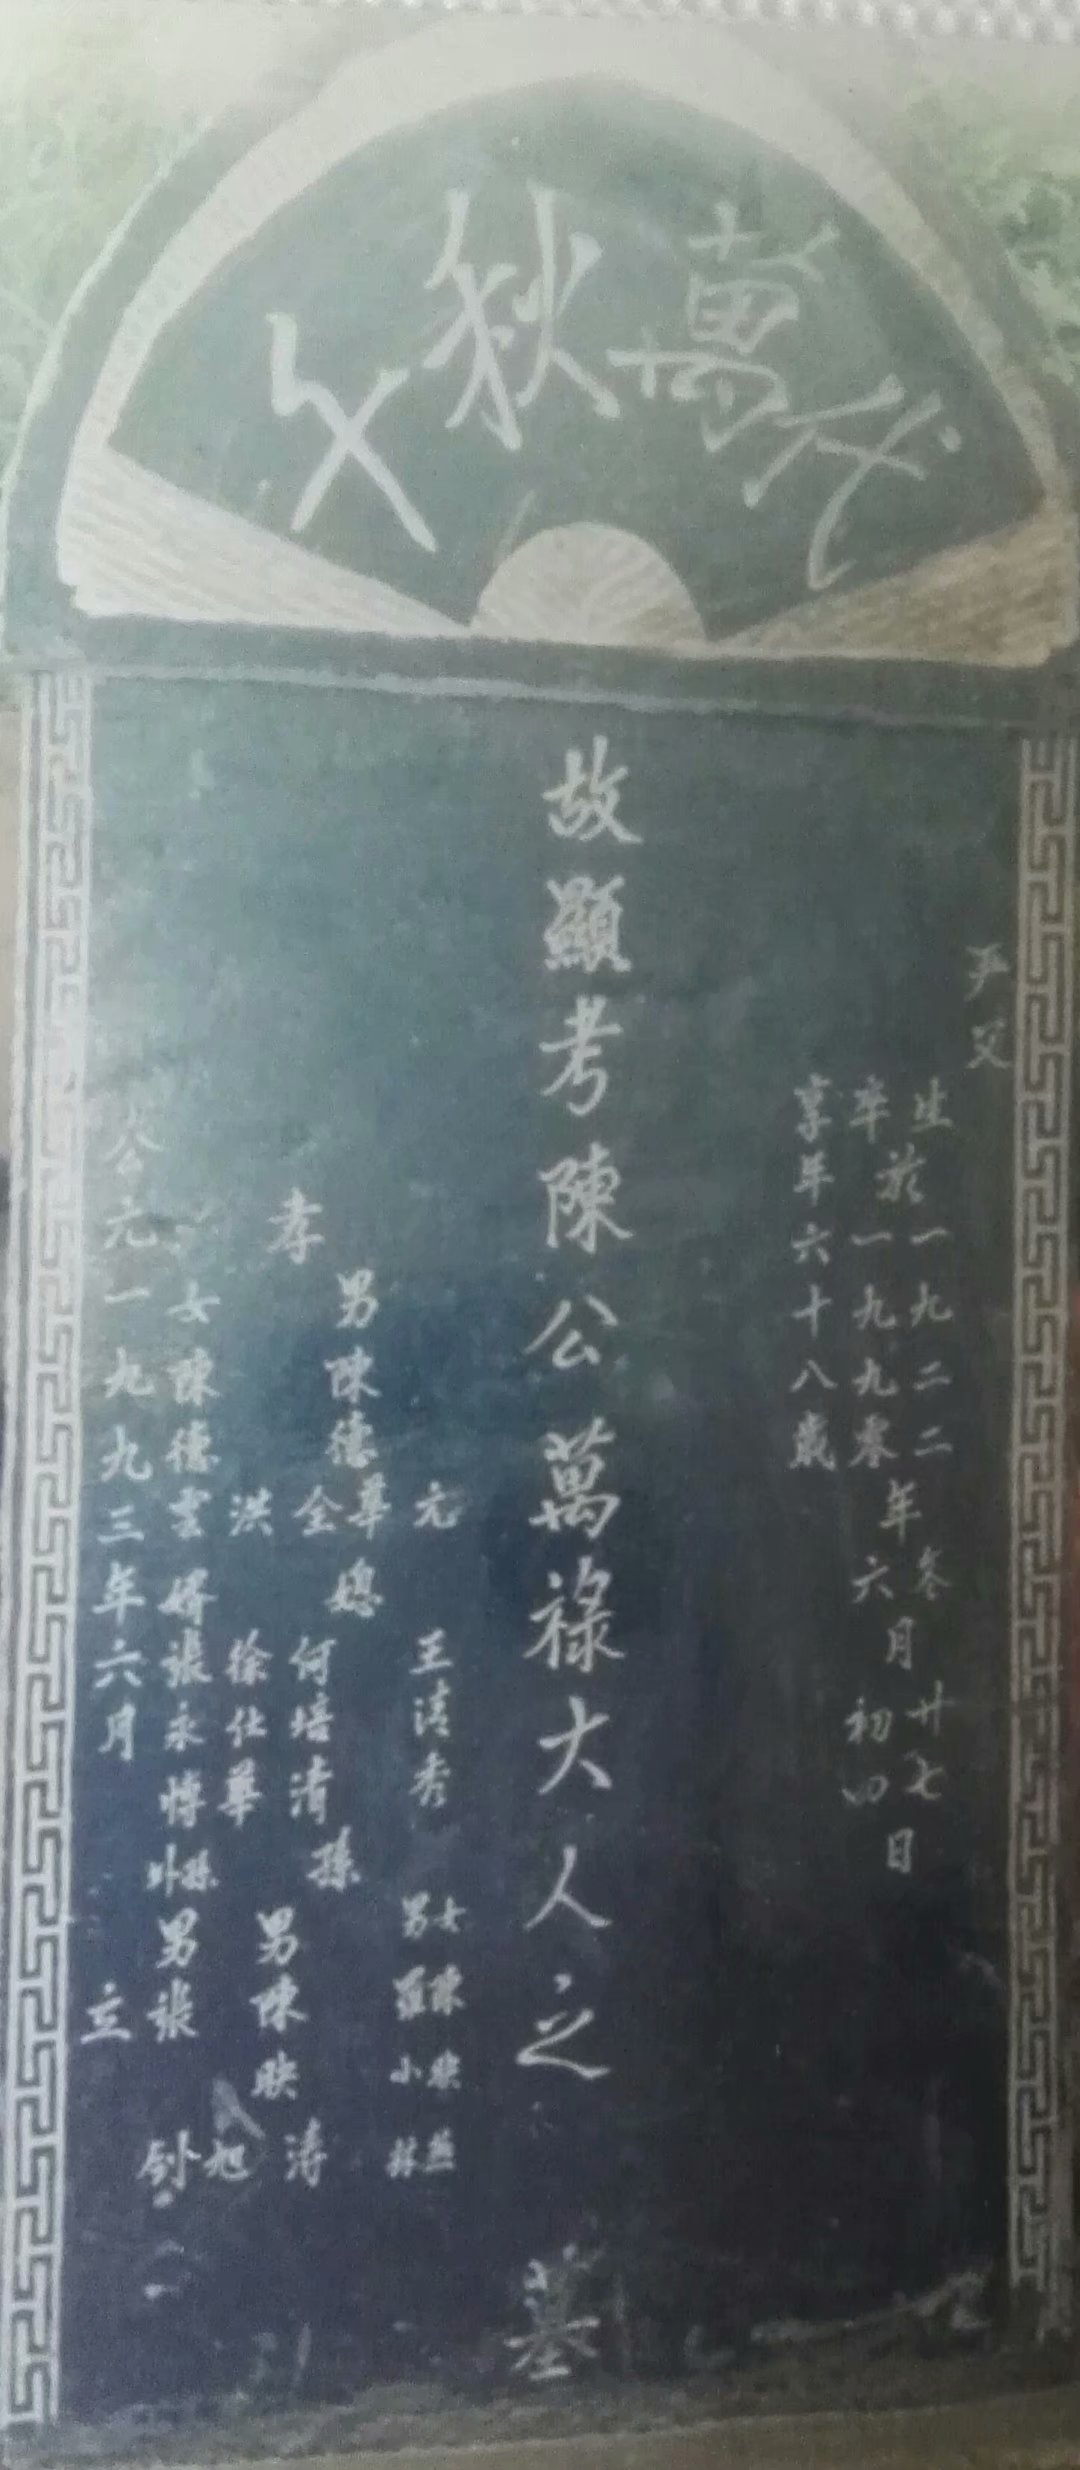 代萬秋
故顯考陳公萬祿大人之墓
严父
生於一九二二年冬月廿七日
卒於一九九零年六月初四日
享年六十八歲
孝
男陳德華 全 元 洪
媳 王清秀 何培清 徐仕華
孫
女陳映燕
男羅小林
男陳映涛 旭
女陳德雲婿張永博外孫男張釗
公元一九九三年六月 立